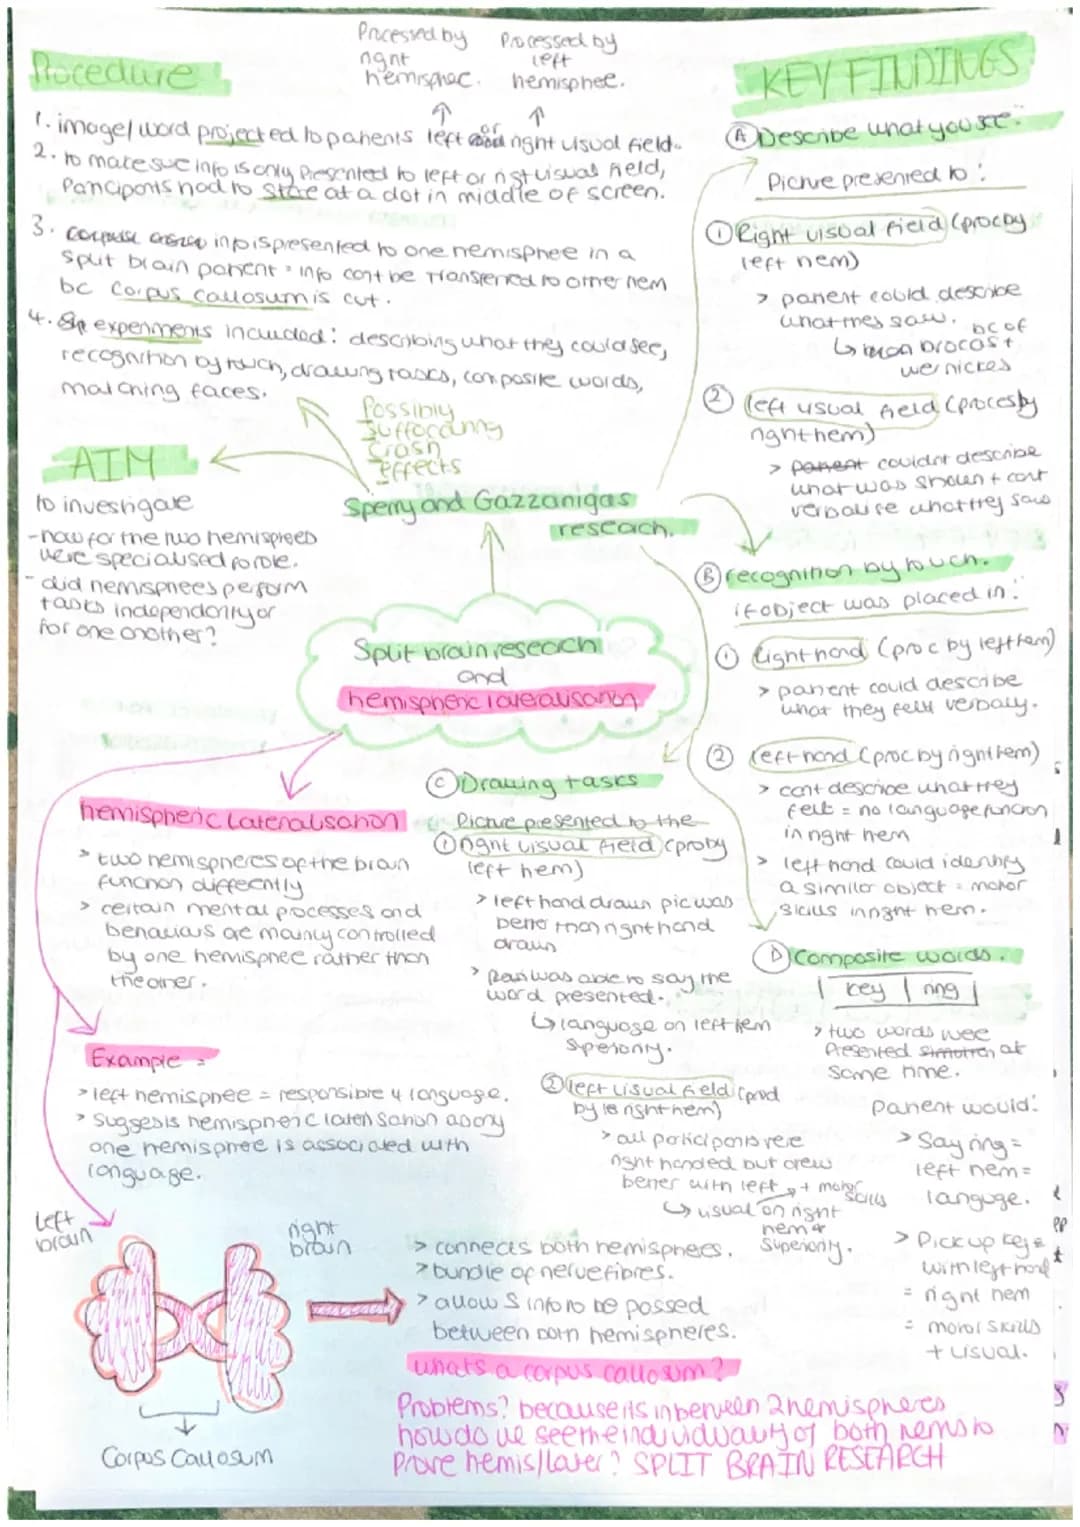 Procedure
Processed by right hemisphec.
Processed by left hemisphee.
1. image/word projected to patients left or right visual field.
2. to make sue info is only Presented to left or rigt visual field,
Participants had to stare at a dot in middle of screen.
3. info is presented to one hemisphee in a
split brain patient = info cont be transferred to other hem
bc Corpus Callosum is cut.
4. experiments included: describing what they could see,
recognition by touch, drawing tasks, composite words,
matching faces.
Possibily
Sufforating
Crash
Effects
AIM
to investigate
- how far the two hemisphees
were specialised to role.
- did hemisphees perform
tasks independently or
for one another?
Sperry and Gazzanigas
reseach.
Split brain reseach
and
hemispheric lateralisation
KEY FINDINGS
A Describe what you see:
Picture presented to:
1 Right visual field (proc by
left hem)
> patient could describe
what they saw.
bc of
brocas +
wernickes
2 left visual field (proces by
right hem)
> patient couldnt describe
what was shown + cant
verbalise what they saw
B recognition by touch.
if object was placed in:
1 Right hand (proc by left hem)
> patient could describe
what they felt verbaly.
2 left hand (proc by right hem)
> cant describe what they
felt = no language function
in right hem
> left hand could identify
a similar object = motor
skills in right hem.
C Drawing tasks
Picture presented to the
1 right visual field (pro by
left hem)
> left hand drawn pic was
better than right hand
drawn
> was able to say the
word presented.
language on left hem
superiority.
2 left visual field (prod
by is right hem)
> all participants were
right handed but drew
better with left + motor skills
visual on right
hem
superiority.
D Composite words.
key | ring
> two words wee
Presented at
same time.
Patient would:
> Say ring =
left hem =
languge.
> Pick up key =
with left hand
= right hem
= motor skills
+ visual.
hemispheric Lateralisation
> two hemispheres of the brain
function differently
> certain mental processes and
behaviours are mainly controlled
by one hemisphee rather than
the other.
Example =
> left hemisphee = responsible 4 language.
> Suggests hemispheric
one hemisphee is associated with
language.
Left
brain
right
brain
Corpus Callosum
> connects both hemisphees.
> bundle of nerve fibres.
> allows info to be passed
between both hemispheres.
whats a corpus callosum?
Problems? because its inbetween 2 hemispheres
how do we see the individuality of both hems to
Prove hemis/later? SPLIT BRAIN RESEARCH